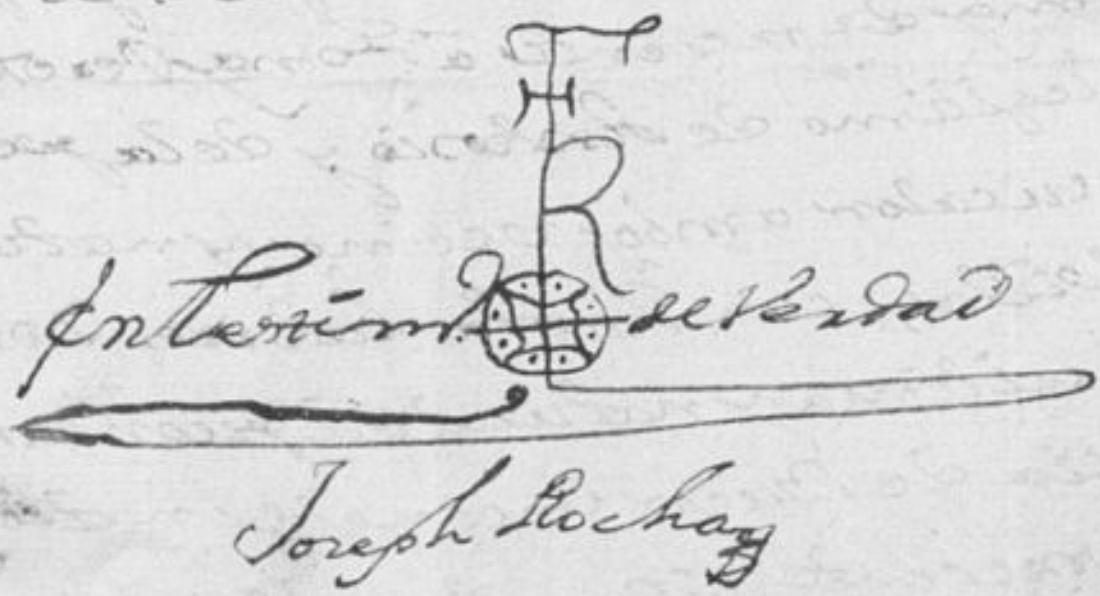 JHR
En testim.º de Verdad
Joseph Rocha